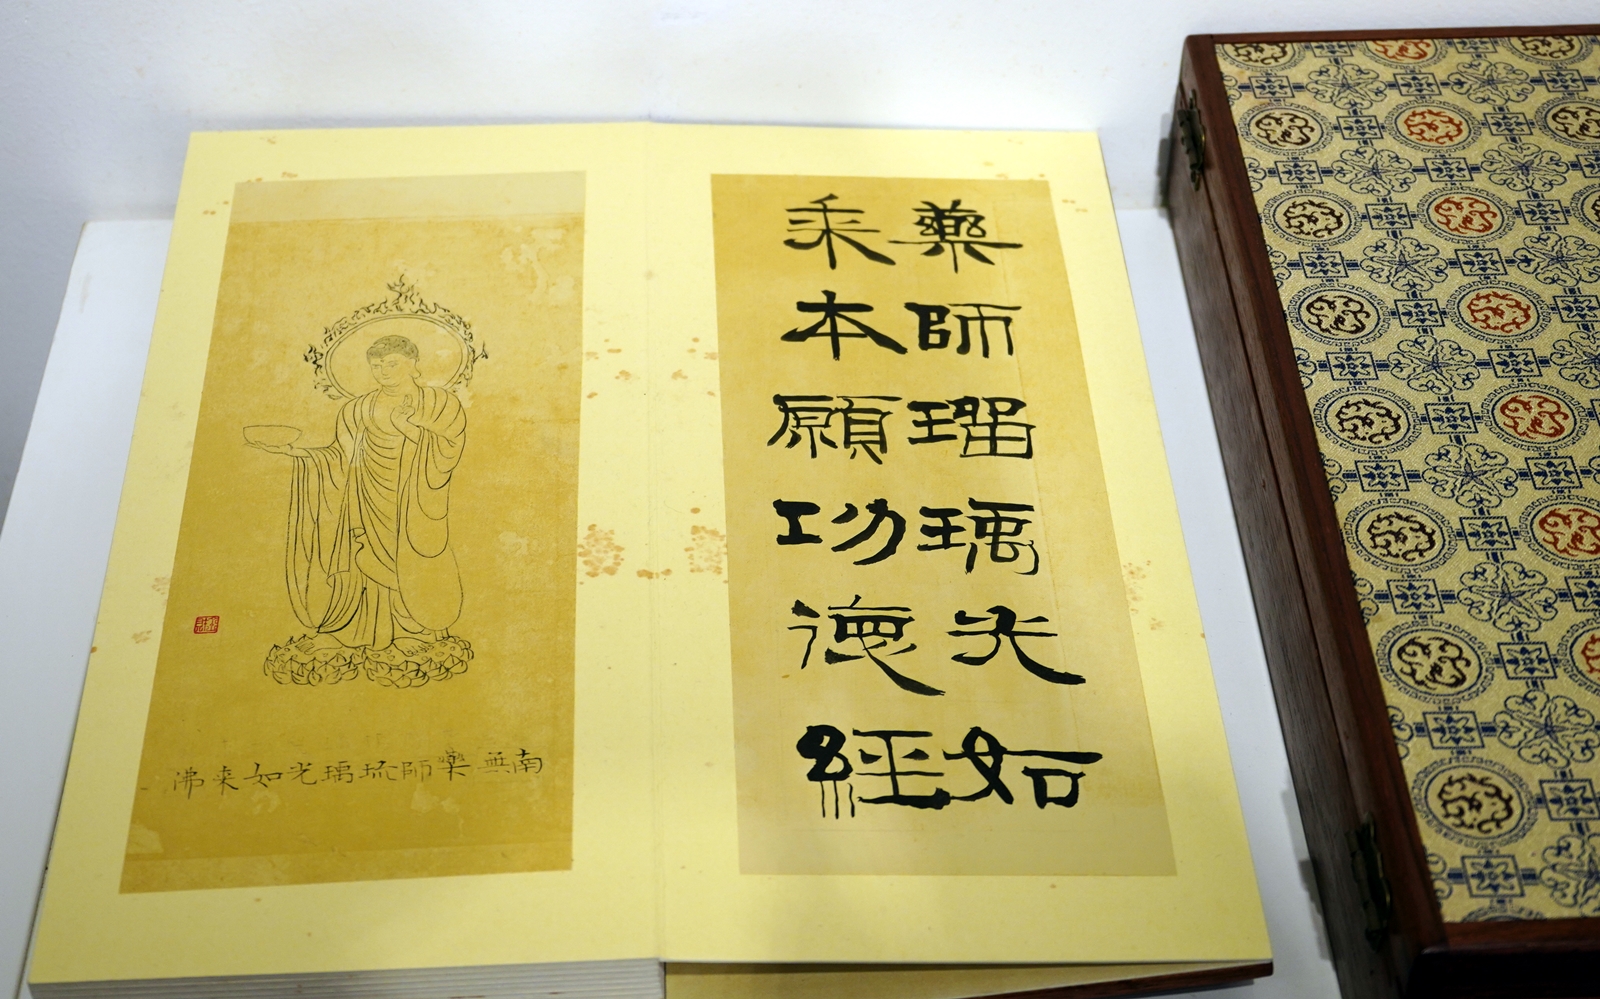 藥師瑠璃光如
来本願功德經
南無藥師琉璃光如来佛